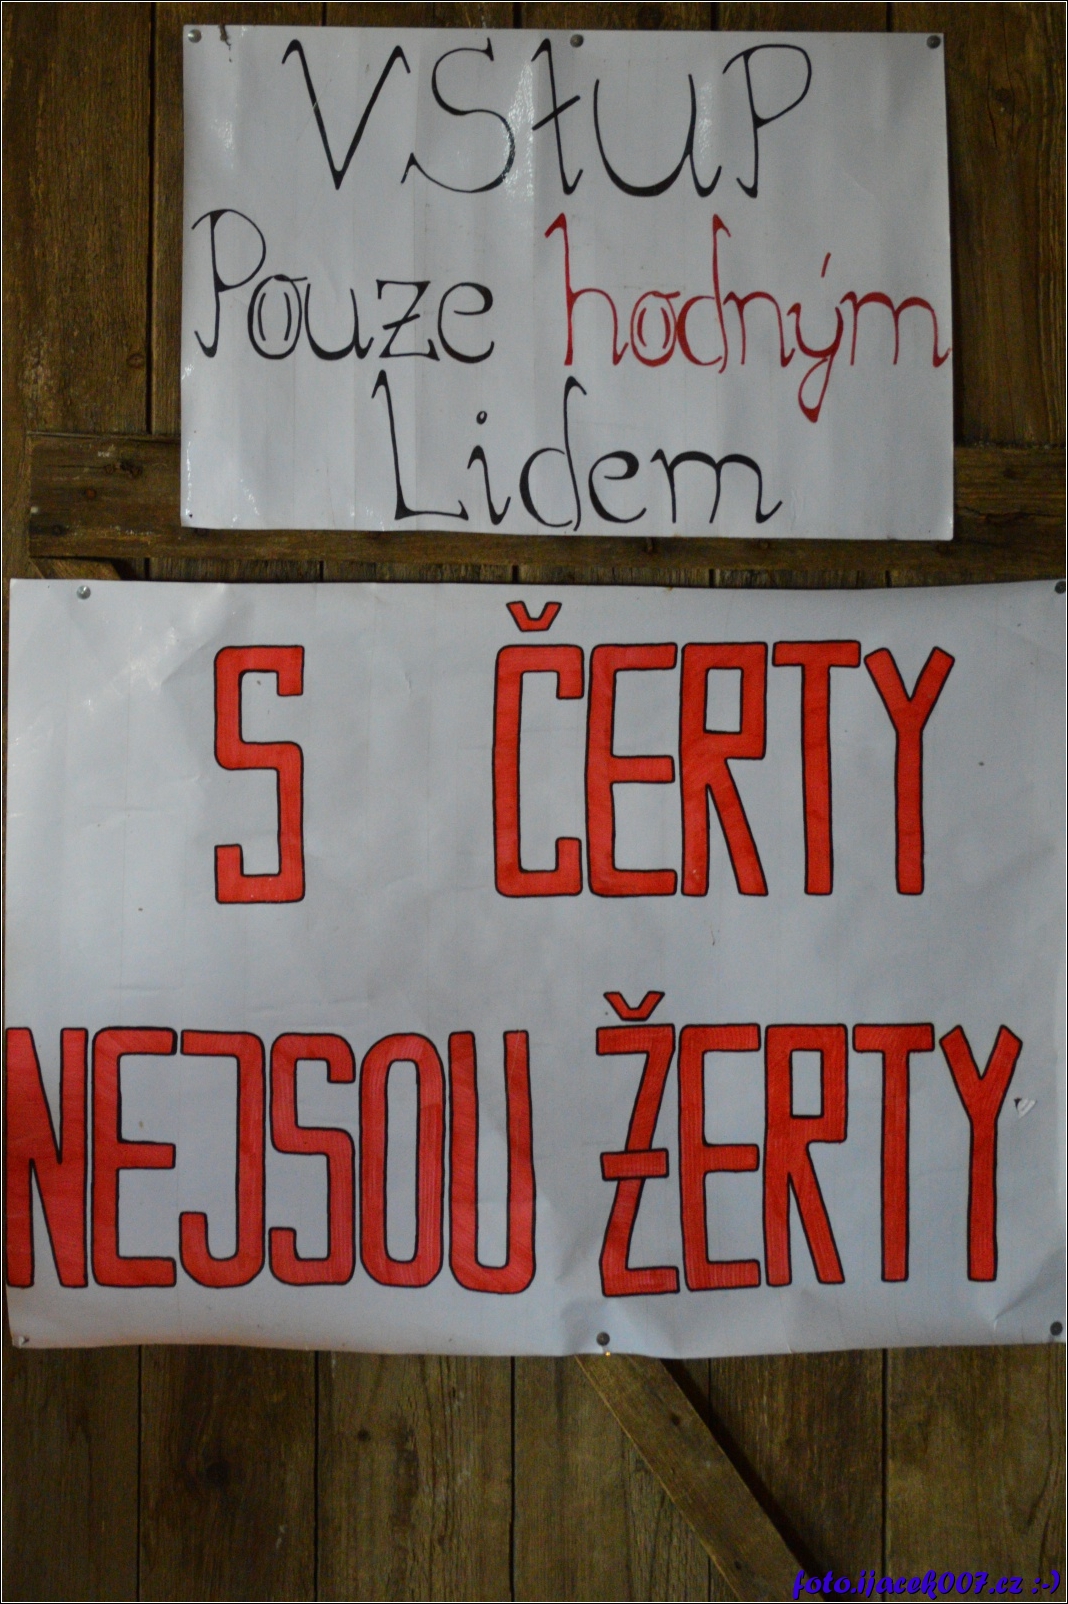 VStUP
Pouze hodným
Lidem
S ČERTY
NEJSOU ŽERTY
foto.ijacek007.cz :-)